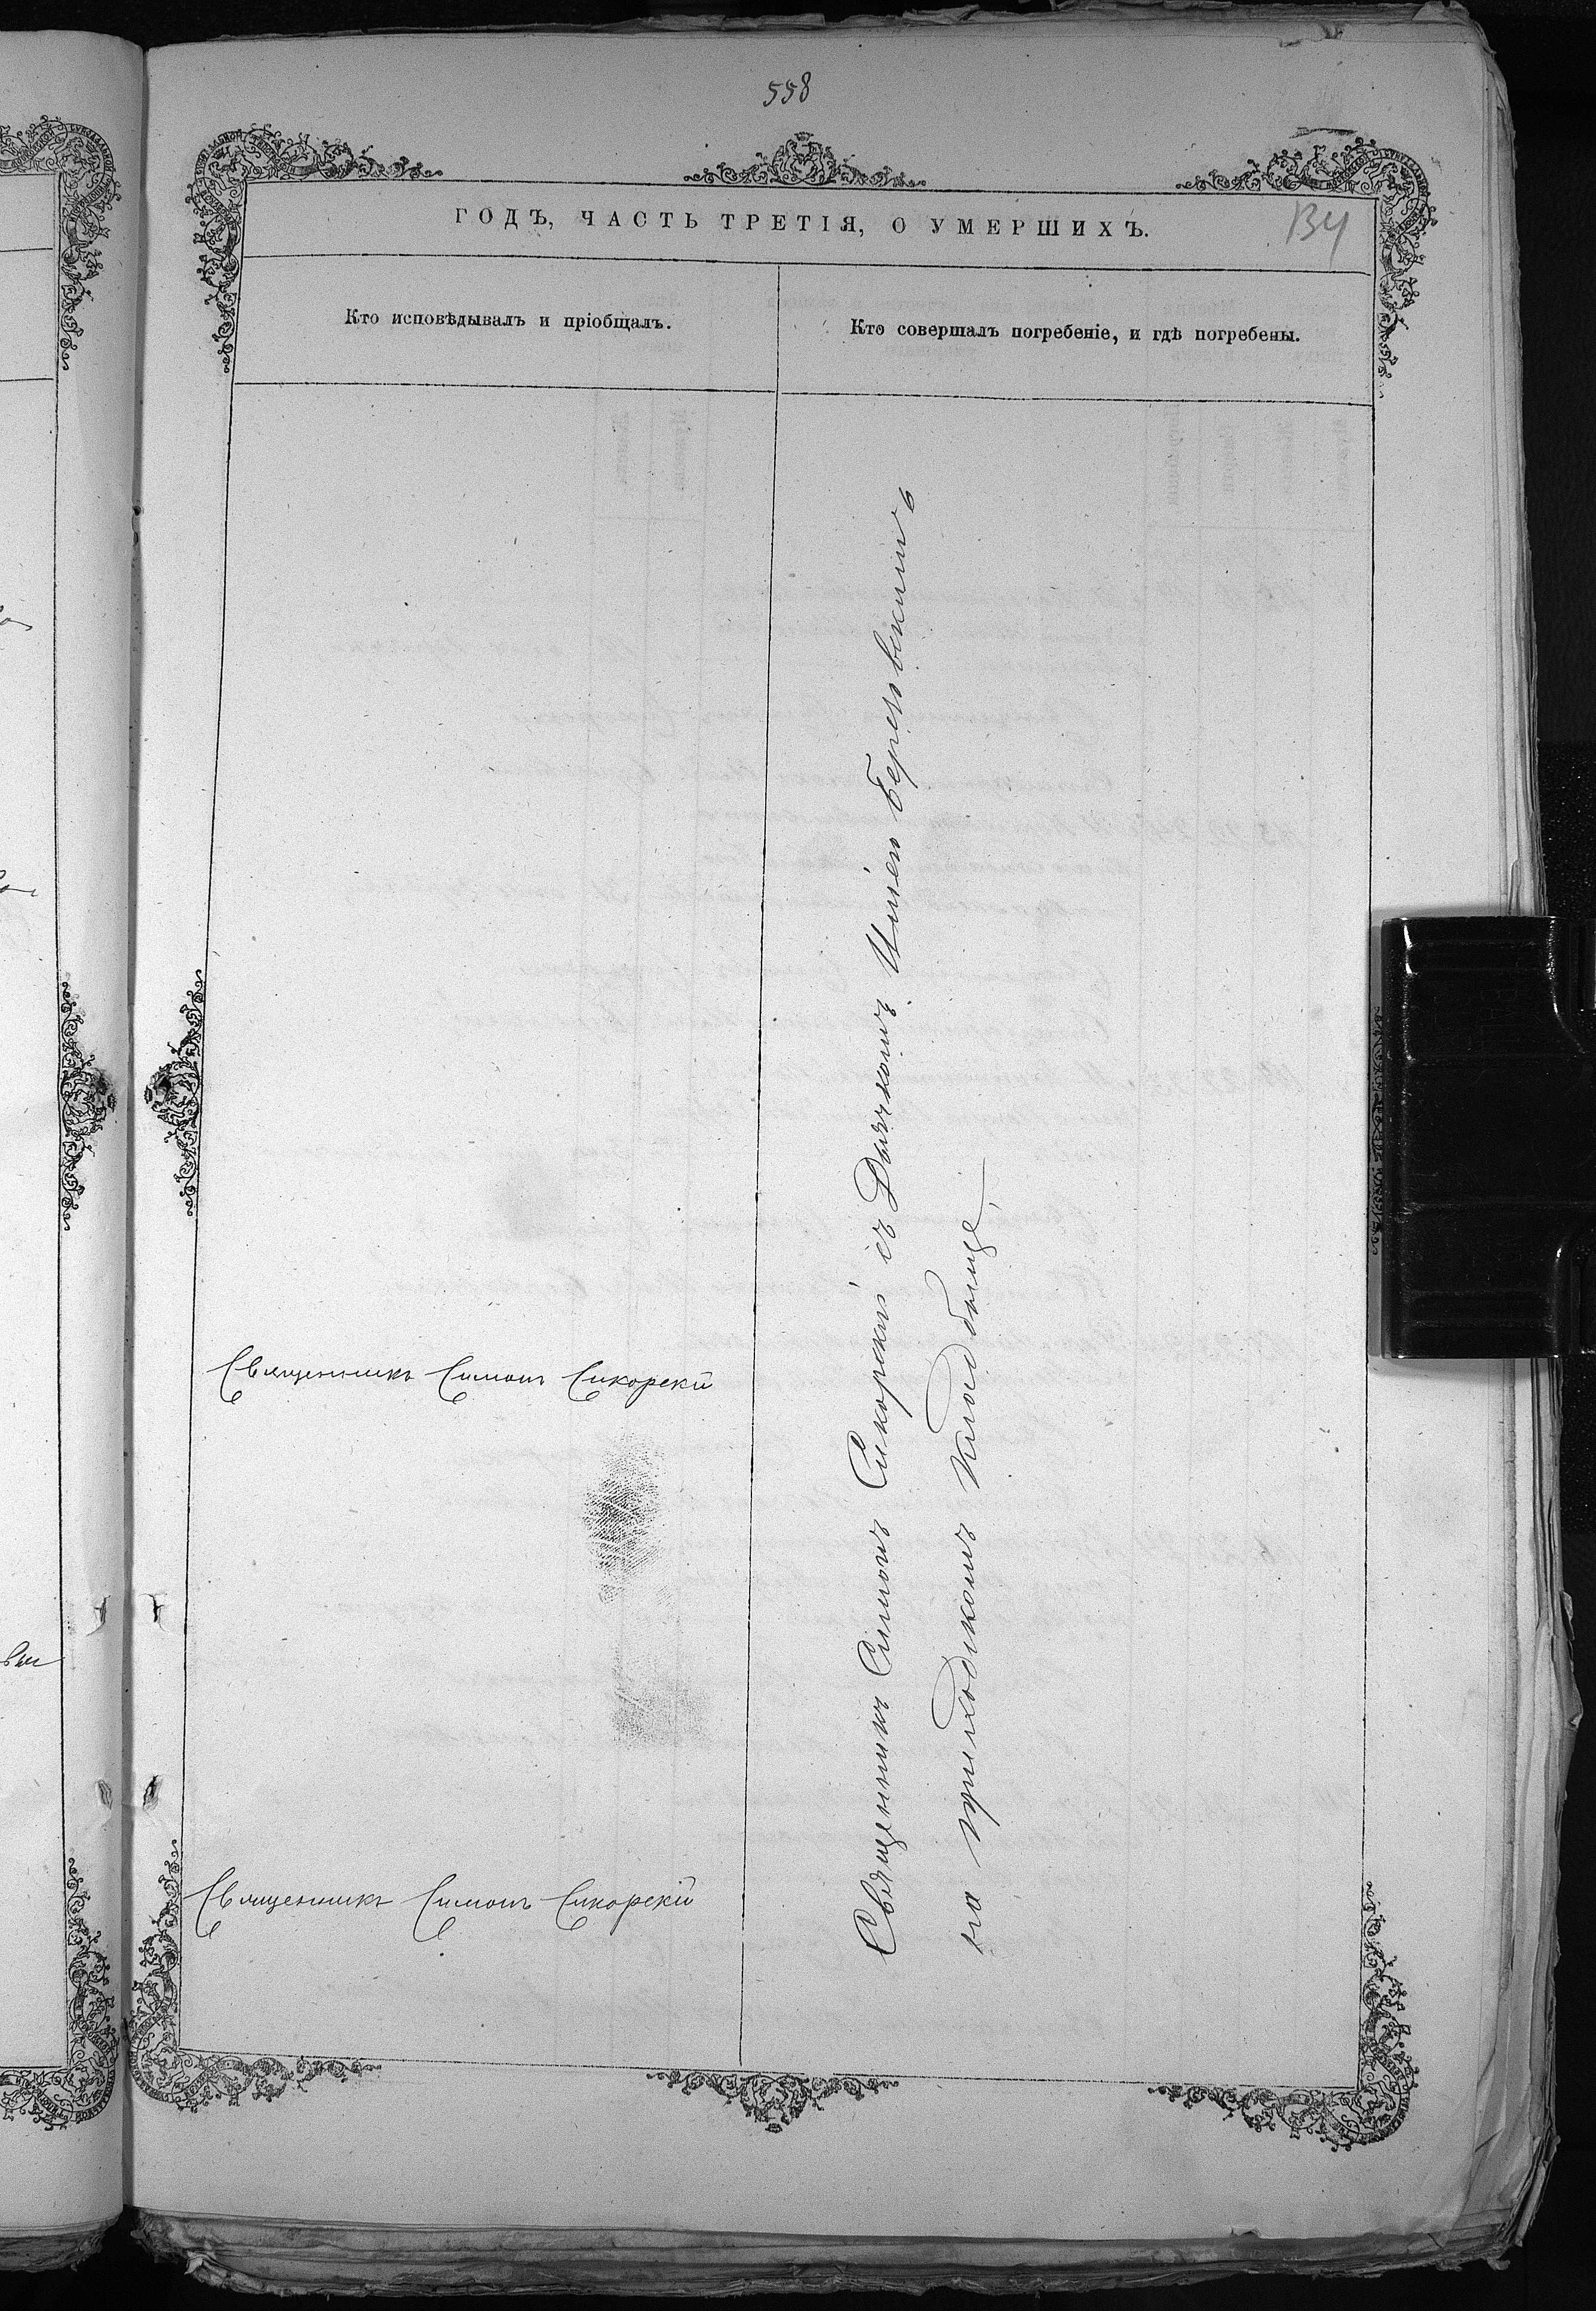 558
ГОДЪ, ЧАСТЬ ТРЕТІЯ, О УМЕРШИХЪ.
134
Кто исповѣдывалъ и пріобщалъ.
Кто совершалъ погребеніе, и гдѣ погребены.
Священникъ Симонъ Сикорскій
Священникъ Симонъ Сикорскій
Священникъ Симонъ Сикорскій съ Дьячкомъ Березовскимъ
на приходскомъ кладбищѣ